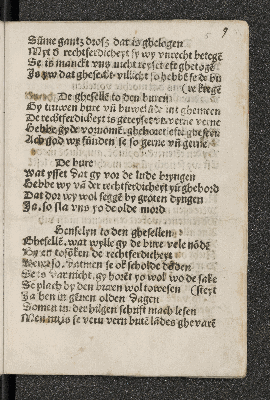 9
Süme gantz drosz dat is ghelogen
Myt d rechtferdicheyt sy wy vnrecht betegē
Se is manckt vns nicht
Js yw dat ghesecht villicht so hebbē se de bu
(re kregē
De ghesellē to den buren
Gy truwen bure vñ buwelude int ghemeen
De rechtferdicheyt is
Hebbe gyde vornomē. ghehoret
Ach god wy fünden se so gerne vñ gerne
De bure
Wat ysset dat gy vor de lude bryngen
Hebbe wy vā der rechtferdicheyt ȳü gehord
Dat dor wy wol seggē by groten dyngen
Ja. so sla vns yo de olde mord
Henselyn to den ghesellen
Ghesellē. wat wylle gy de bure vele nōdē
By en to sōken de rechtferdicheyt
se ok scholde dōden
Se is dar nicht. gy hōret yo wol wo de sake
Se plach by den buren wol to wesen (steyt
Ja ben in gēnen olden dagen
Somen in der hilgen schrift mach lesen
Men nu is se veru vern butē lādes ghevarē